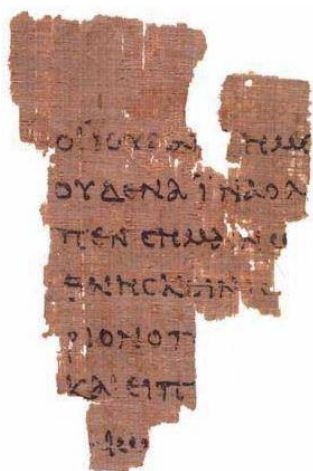 ΟΙ ΙΟΥΔΑΙ ΗΜ
ΟΥΔΕΝΑ ΙΝΑ Ο Λ
ΠΕΝ CΗΜΑΙΝΩ
ΘΝΗCΚΕΙΝ
ΡΙΟΝ Ο Π
ΚΑΙ ΕΙΠ